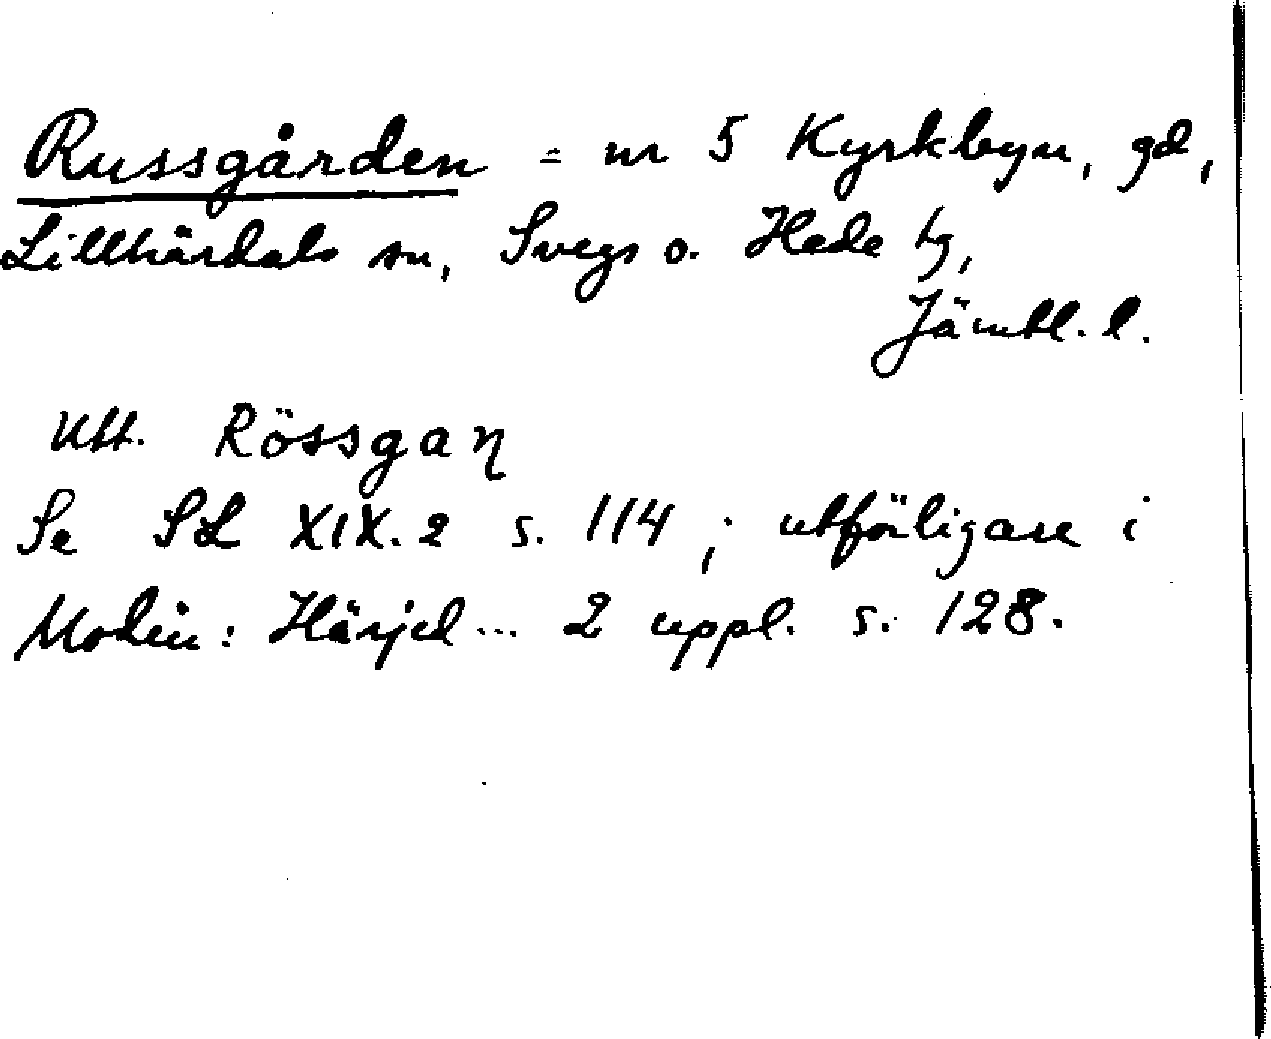 Russgården = nr 5 Kyrkbyn, gd,
Lillhärdals sn, Svegs o. Hede tg,
Jämtl. l.
Utt. Rössgaη
Se SL XIX.2 s. 114; utförligare i
Modin: Härjed... 2 uppl. s. 128.